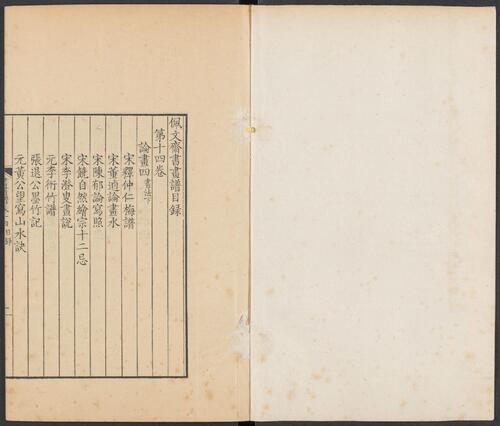 佩文齋書畫譜目錄
第十四卷
論畫四 畫法下
宋釋仲仁梅譜
宋董逌論畫水
宋陳郁論寫照
宋饒自然繪宗十二忌
宋李澄叟畫說
元李衎竹譜
張退公墨竹記
元黃公望寫山水訣